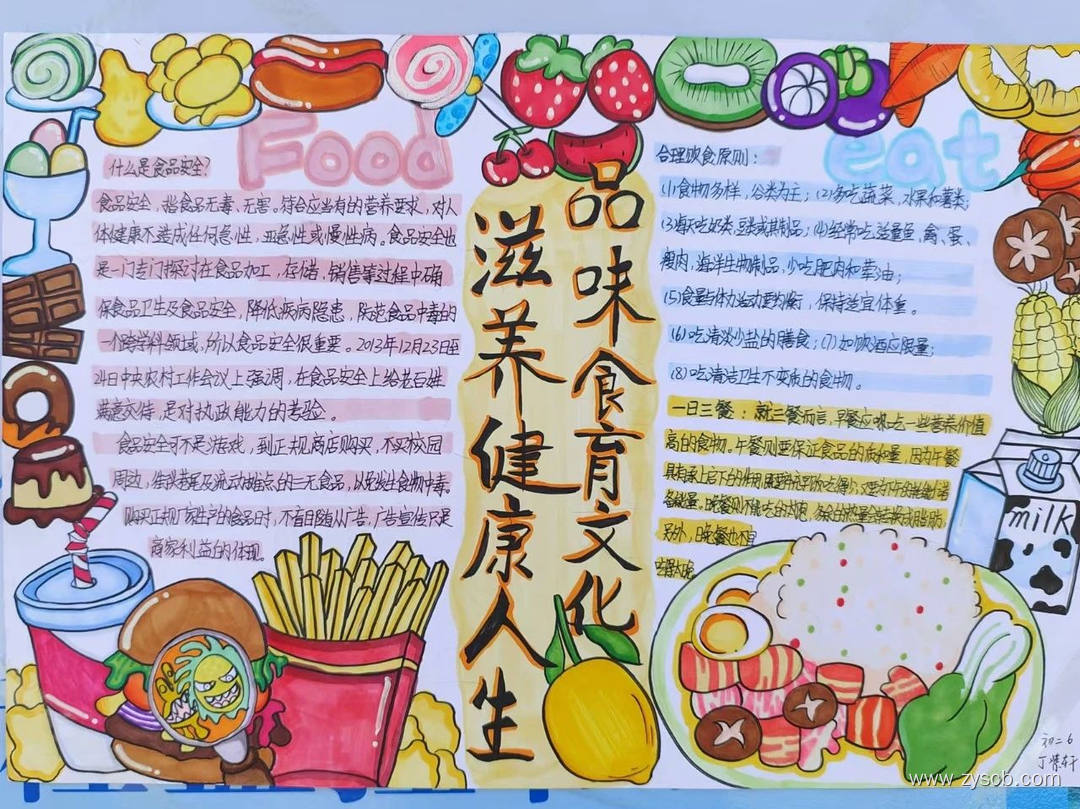 Food
eat
什么是食品安全?
食品安全,指食品无毒、无害。符合应当有的营养要求,对人
体健康不造成任何急性,亚急性或慢性病。食品安全也
是一门专门探讨在食品加工,存储,销售等过程中确
保食品卫生及食品安全,降低疾病隐患,防范食品中毒的
一个跨学科领域,所以食品安全很重要。2013年12月23日至
24日中央农村工作会议上强调,在食品安全上给老百姓
满意交待,是对执政能力的考验。
食品安全可不是游戏,到正规商店购买,不买校园
周边,街头巷尾及流动摊点的三无食品,以免发生食物中毒。
购买正规厂家生产的食品时,不盲目随从广告,广告宣传只是
商家利益的体现。
品味食育文化
滋养健康人生
合理饮食原则:
(1)食物多样,谷类为主;(2)多吃蔬菜,水果和薯类;
(3)每天吃奶类,豆类或其制品;(4)经常吃适量鱼,禽、蛋、
瘦肉,海洋生物制品,少吃肥肉和荤油;
(5)食量与体力运动要均衡,保持适宜体重。
(6)吃清淡少盐的膳食;(7)如饮酒应限量;
(8)吃清洁卫生不变质的食物。
一日三餐:就三餐而言,早餐应吃一些营养价值
高的食物。午餐则要保证食品的质和量,因为午餐
具有承上启下的作用
另外,晚餐也不
milk
初二6
www.zyscb.com